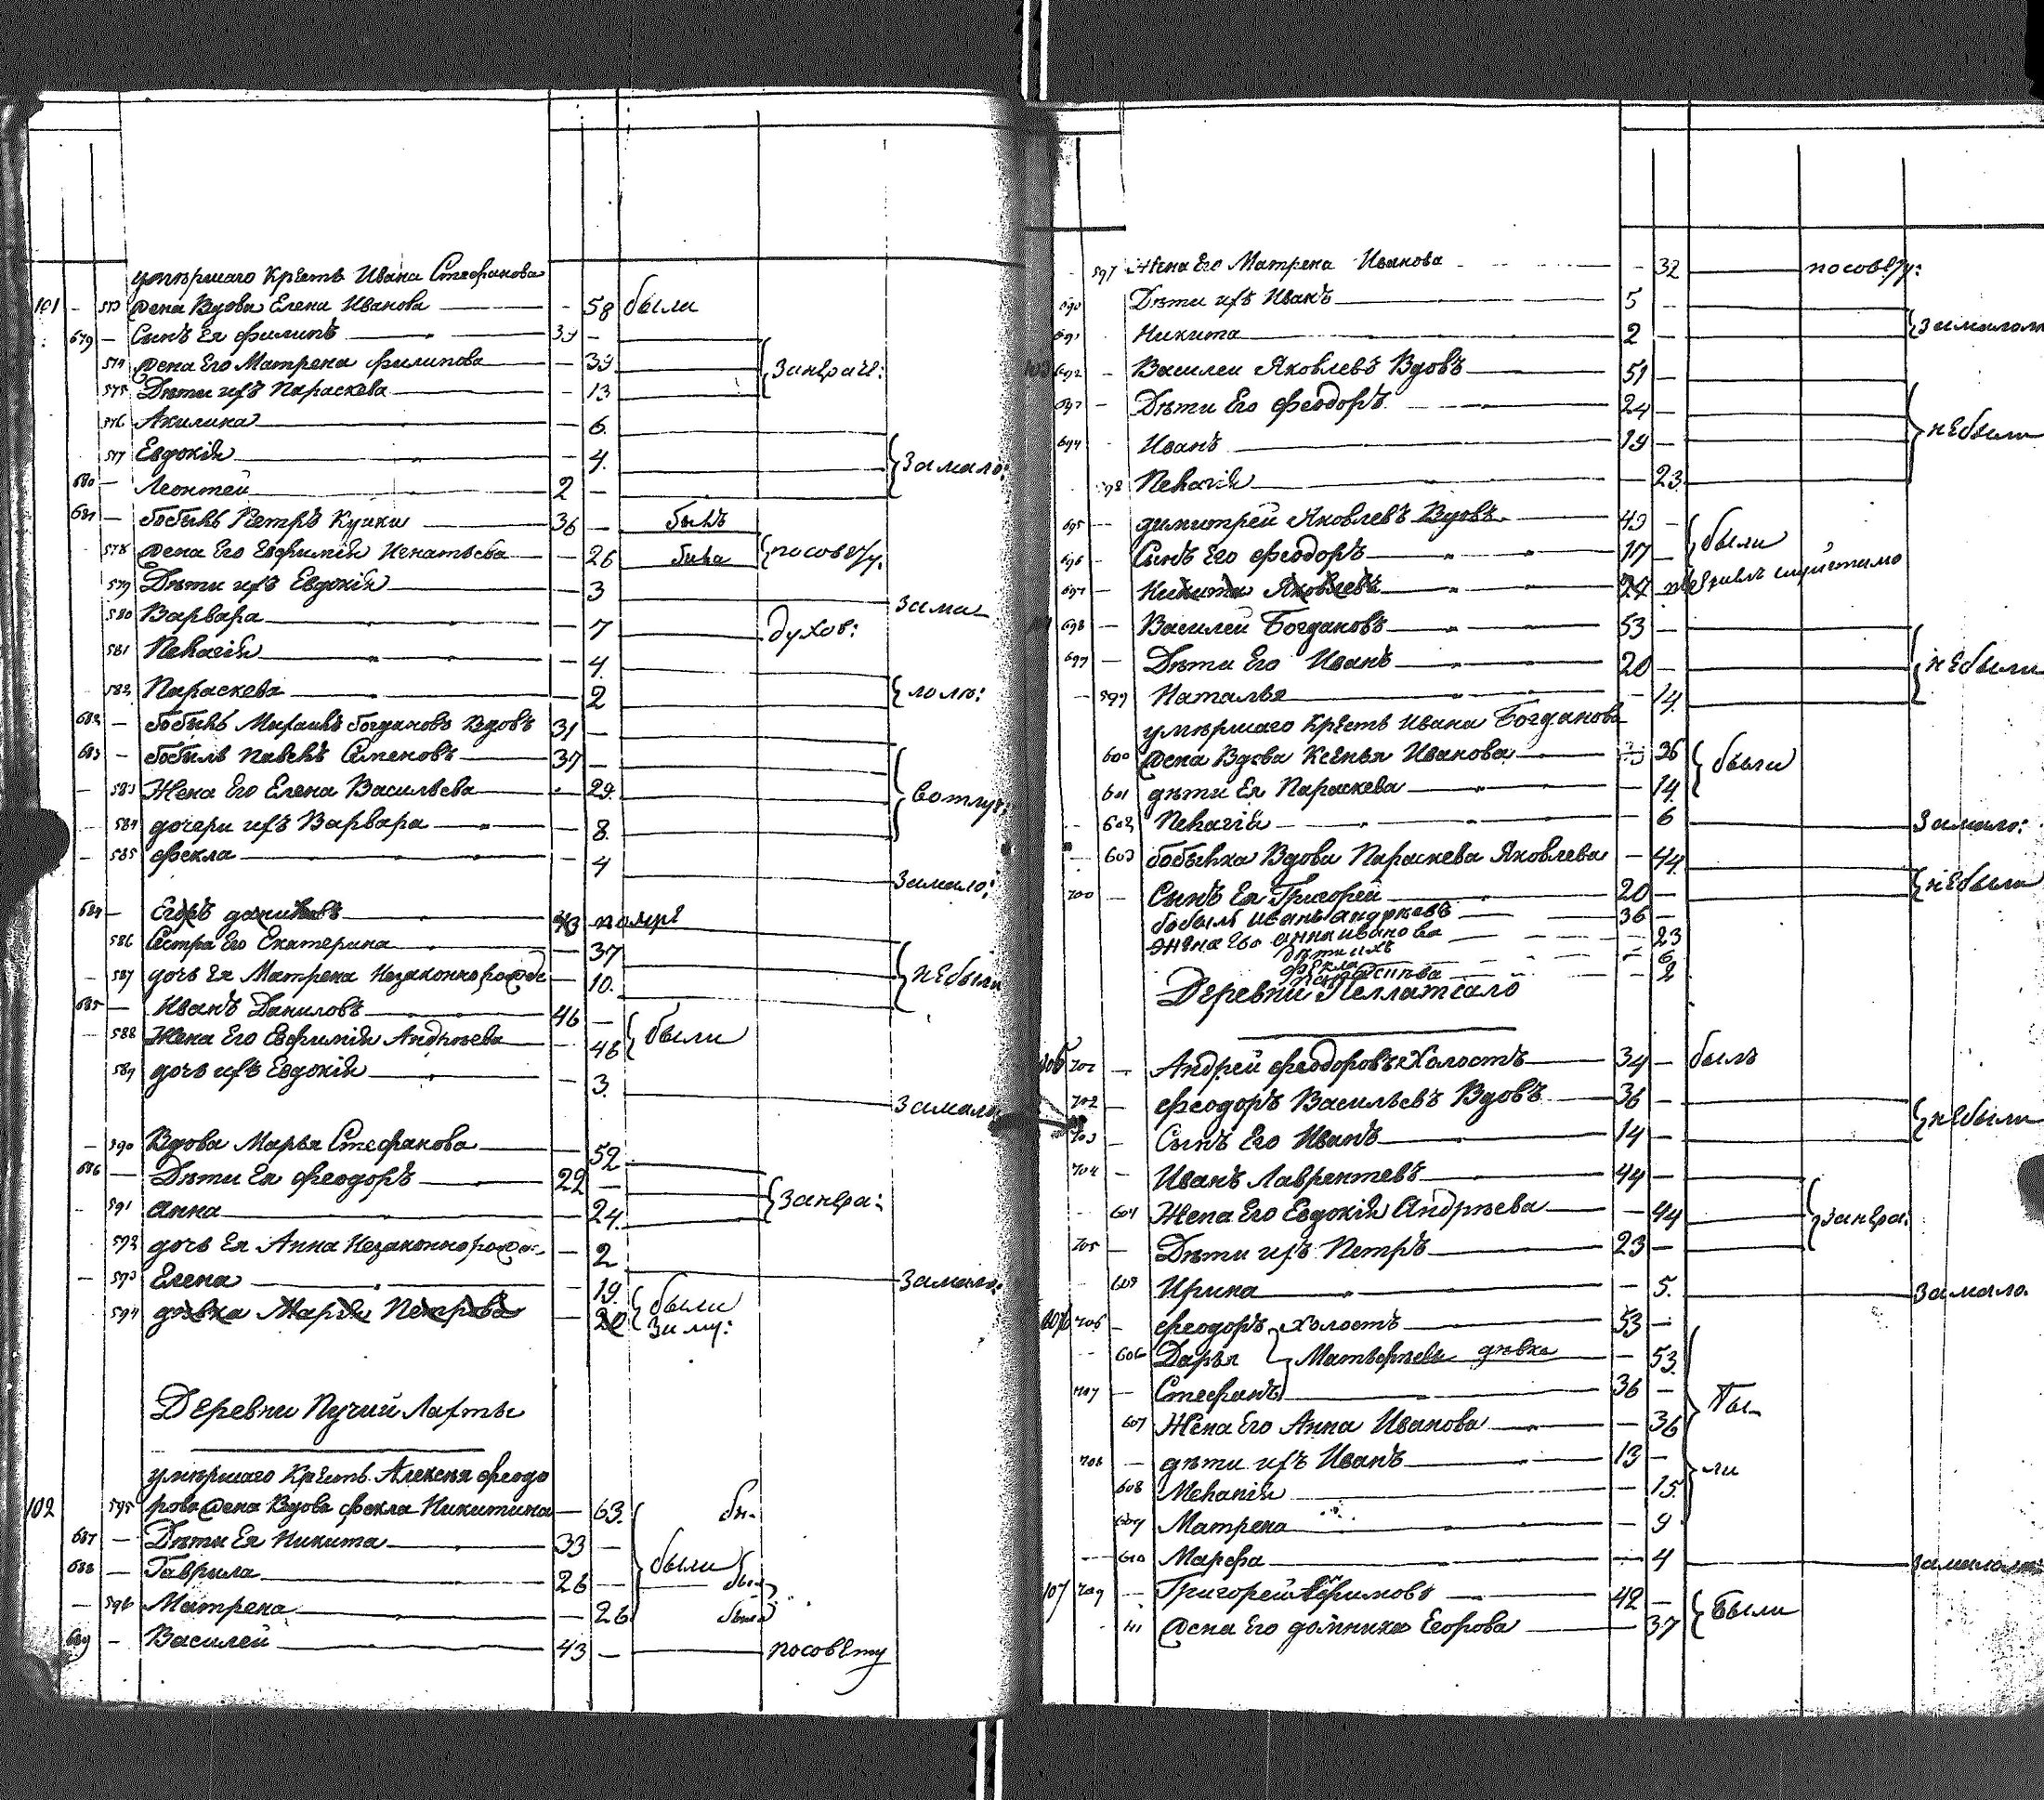 умѣршаго Крѣстъ Ивана Стефанова
101 - 573 Жена Вдова Елена Иванова - 58 были
679 - Сынъ Ея Филипъ 39 -
574 Жена Его Матрена Филипова - 39
575 Дѣти ихъ Параскева - 13
576 Акилина - 6.
577 Евдокія - 4.
680 - Леонтей 2 -
681 - бобыль Петръ Кушки 36 - былъ
578 Жена Его Евфимія Игнатьева - 26 была посовету.
579 Дѣти ихъ Евдокія - 3
580 Варвара - 7 духов:
581 Пелагія - 4.
582 Параскева - 2
682 - бобыль Михаилъ Богдановъ Вдовъ 31 -
683 - бобыль Павелъ Семеновъ 37 -
583 Жена Его Елена Васильева - 29.
584 дочери ихъ Варвара - 8.
585 Фекла - 4
Замало:
684 - Егоръ Даниловъ 43 помре
586 Сестра Его Екатерина - 37
587 дочь Ея Матрена Незаконнорожде - 10. небыли
685 - Иванъ Даниловъ 46 -
588 Жена Его Евфимія Андреева - 46 были
589 дочь ихъ Евдокія - 3.
Замало
590 Вдова Марья Стефанова - 52
686 - Дѣти Ея Феодоръ 22 -
591 Анна - 24.
592 дочь Ея Анна Незаконнорожд: - 2
593 Елена - 19. Замало.
594 дѣвка Марія Петрова - 20 были
Деревни Пучий Лахты
умѣршаго Крѣстъ Алексея Феодо
102 595 рова Жена Вдова Фекла Никитина - 63.
687 - Дѣти Ея Никита 33 -
688 - Гаврила 26 - были
596 Матрена - 26
689 - Василей 43 - посовету
597 Жена Его Матрена Иванова - 32 посовету:
690 Дѣти ихъ Иванъ 5 -
691 Никита 2 -
692 - Василеи Яковлевъ Вдовъ 51 -
693 - Дѣти Его Феодоръ 24 -
694 - Иванъ 19 - небыли
598 Пелагія - 23.
695 - Димитреи Яковлевъ Вдовъ 49 -
696 - Сынъ Его Феодоръ 17 - были
697 - Никита Яковлевъ 24
698 - Василеи Богдановъ 53 -
699 - Дѣти Его Иванъ 20 - небыли
- 599 Наталья - 14.
умѣршаго Крѣстъ Ивана Богданова
600 Жена Вдова Ксенья Иванова 36 были
601 дѣти Ея Параскева - 14.
602 Пелагія - 6 Замало:
603 бобылка Вдова Параскева Яковлева - 44.
700 - Сынъ Ея Григорей 20 - небыли
бобыль Иванъ Андреевъ 36 -
жена Его Анна Иванова - 23
Дѣти ихъ
Фекла - 6
- 2
Деревни Пеллатсало
701 - Андрей Феодоровъ Холостъ 34 - былъ
702 - Феодоръ Васильевъ Вдовъ 36 -
703 - Сынъ Его Иванъ 14 - небыли
704 - Иванъ Лаврентевъ 44 -
604 Жена Его Евдокія Андрѣева - 44
705 - Дѣти ихъ Петръ 23 -
605 Ирина - 5. Замало.
706 - Феодоръ холостъ 53 -
606 Дарья Матвѣевы дѣвка - 53.
707 - Стефанъ 36 -
607 Жена Его Анна Иванова - 36
708 - дѣти ихъ Иванъ 13 -
608 Меланія - 15.
609 Матрена - 9
610 Марфа - 4
107 709 - Григорей Ефимовъ 42 - Были
Жена Его домника Егорова - 37